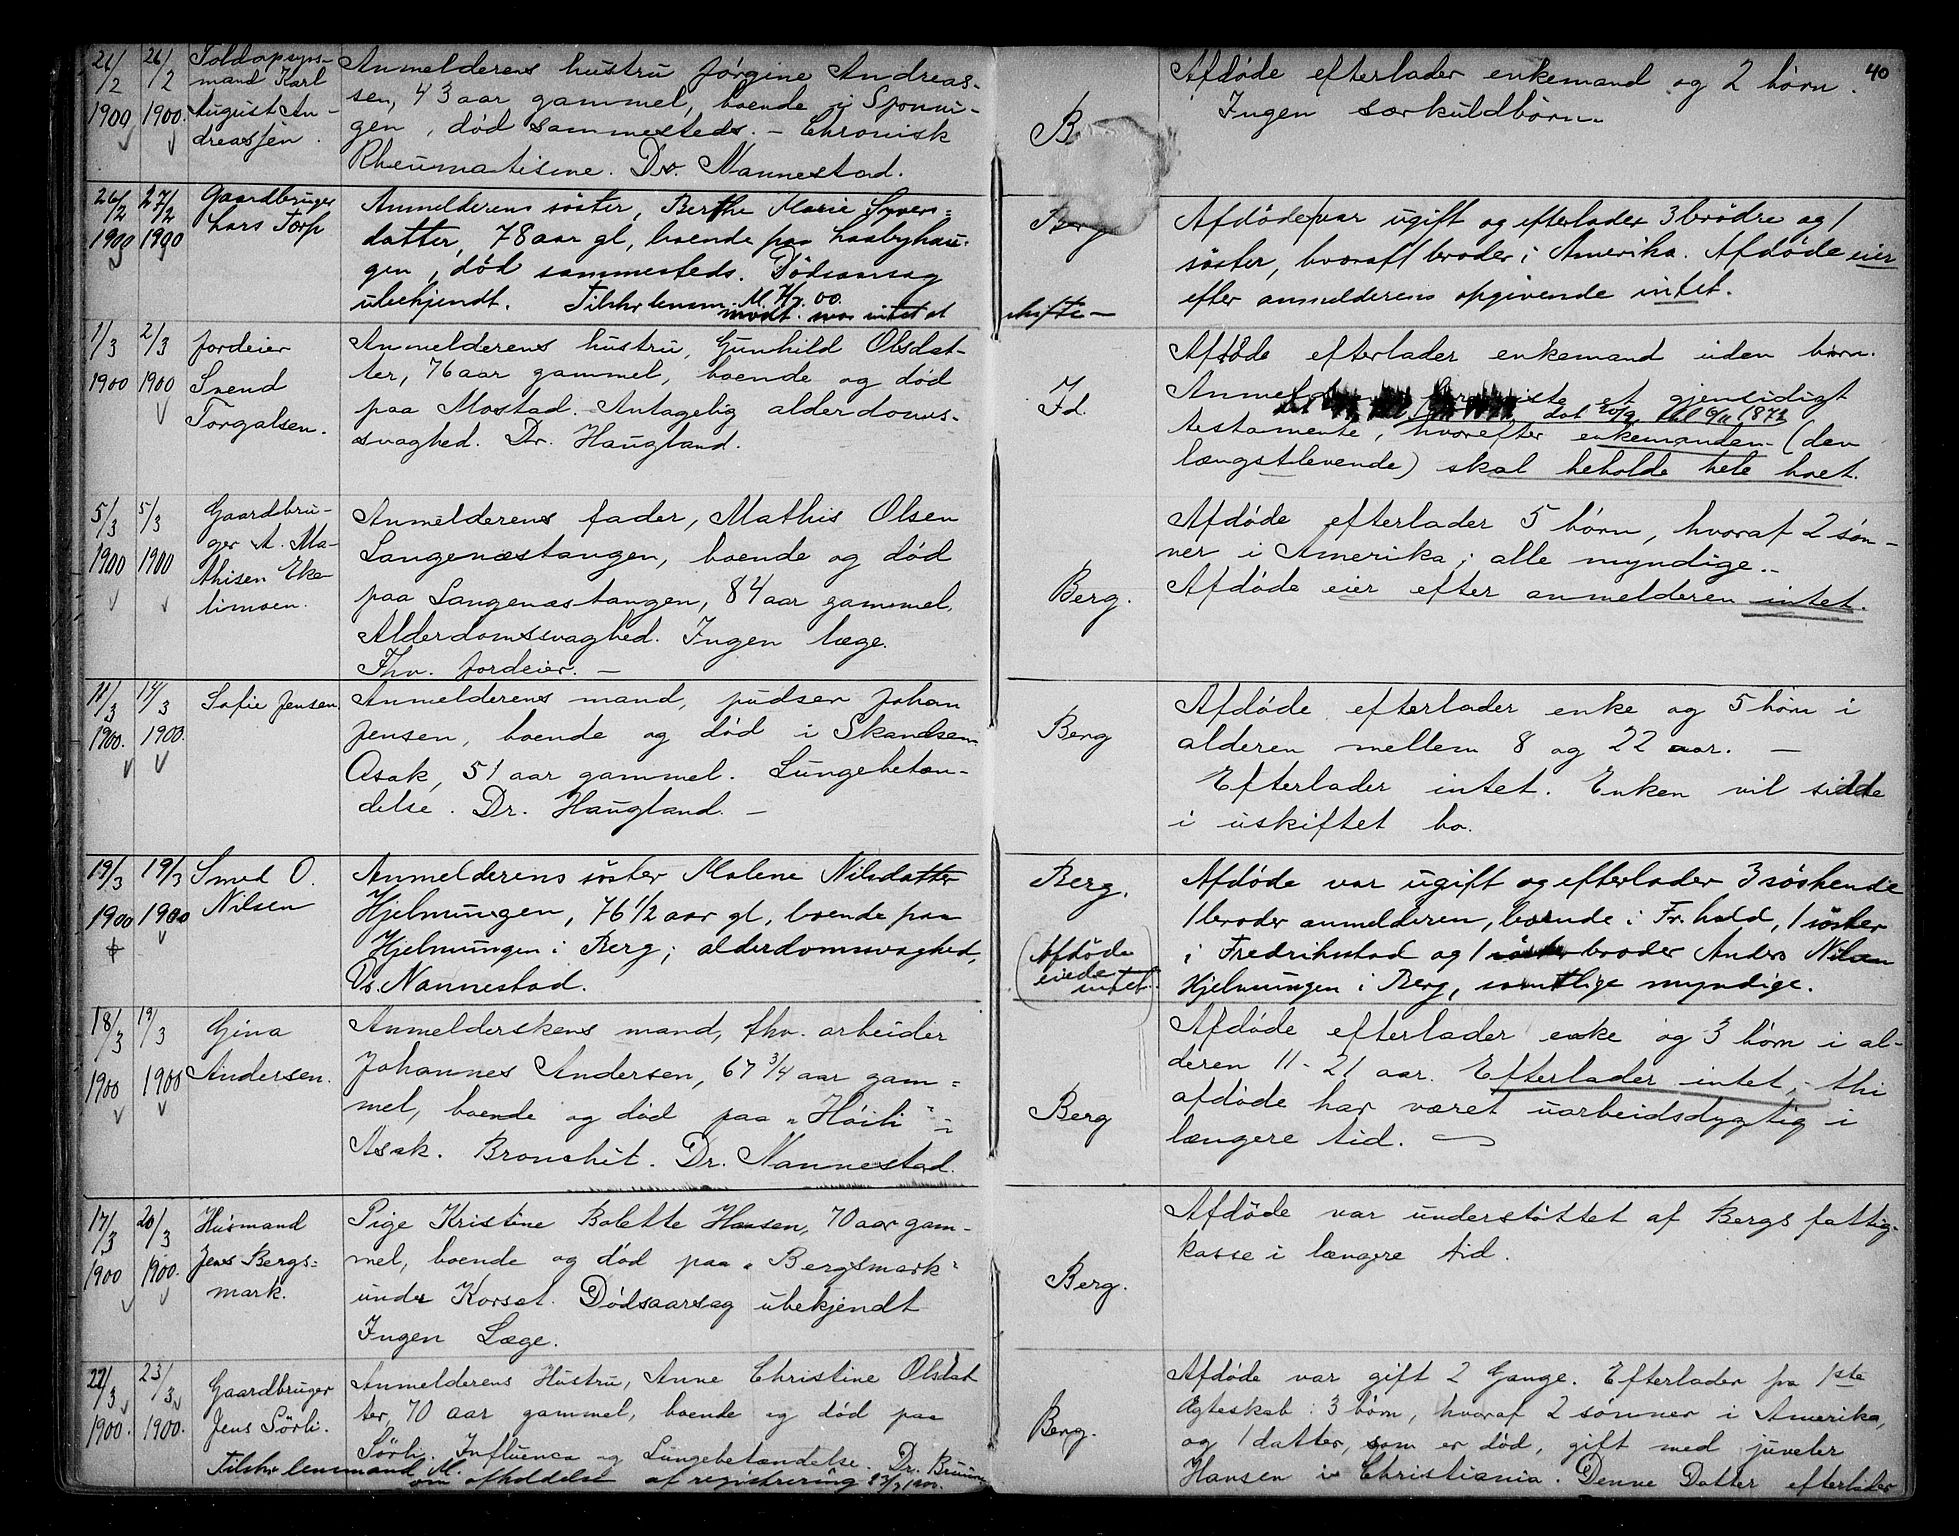 40
26/2 1900
26/2 1900.
Toldopsyns-
mand Karl
August An-
dreassen.
Anmelderens hustru Jørgine Andreas-
sen, 43 aar gammel, boende i Sponvi-
gen, død sammesteds. - Chronisk
Rheumatisme. Dr. Nannestad.
B
Afdøde efterlader enkemand og 2 børn.
Ingen særkuldbørn.
26/2 1900
27/2 1900
Gaardbruger
Lars Torp
Anmelderens søster, Berthe Marie Syvers=
datter, 78 aar gl, boende paa Laabyhau-
gen, død sammesteds. Dødsaarsag
ubekjendt. Tilskr lensm. M. 00.
modt. var intet at
Berg
skifte-
Afdøde var ugift og efterlader 3 brødre og 1
søster, hvoraf 1 broder i Amerika. Afdøde eier
efter anmelderens opgivende intet.
1/3 1900
2/3 1900
Jordeier
Svend
Torgalsen.
Anmelderens hustru, Gunhild Olsdat-
ter, 76 aar gammel, boende og død
paa Mostad. Antagelig alderdoms-
svaghed. Dr. Haugland.
Id.
Afdøde efterlader enkemand uden børn.
Anmel et gjensidigt
dat 1872
testamente, hvorefter enkemanden (den
længstlevende) skal beholde hele boet.
5/3 1900
5/3 1900
Gaardbru-
ger A. Ma-
thisen Eke-
limoen.
Anmelderens fader, Mathis Olsen
Langenæstangen, boende og død
paa Langenæstangen, 84 aar gammel.
Alderdomssvaghed. Ingen læge.
Fhv. Jordeier. -
Berg.
Afdøde efterlader 5 børn, hvoraf 2 søn-
ner i Amerika; alle myndige.
Afdøde eier efter anmelderen intet.
11/3 1900.
14/3 1900.
Sofie Jensen.
Anmelderens mand, pudser Johan
Jensen, boende og død i Skandsen
Asak, 51 aar gammel. Lungebetæn-
delse. Dr. Haugland. -
Berg
Afdøde efterlader enke og 5 børn i
alderen mellem 8 og 22 aar. -
Efterlader intet. Enken vil sidde
i uskiftet bo.
19/3 1900
19/3 1900
Smed O.
Nilsen
Anmelderens søster Malene Nilsdatter
Hjelmungen, 76 1/2 aar gl, boende paa
Hjelmungen i Berg; alderdomssvaghed,
Dr. Nannestad.
Berg.
(Afdøde
eiede
intet.)
Afdøde var ugift og efterlader 3 søskende
1 broder anmelderen, boende i Fr.hald, 1 søster
i Fredrikstad og 1 søster broder Anders Nilsen
Hjelmungen i Berg, samtlige myndige.
18/3 1900
19/3 1900
Gina
Andersen.
Anmelderskens mand, fhv. arbeider
Johannes Andersen, 67 3/4 aar gam=
mel, boende og død paa "Høili" i
Asak. Bronchit. Dr. Nannestad.
Berg
Afdøde efterlader enke og 3 børn i al-
deren 11-21 aar. Efterlader intet, thi
afdøde har været uarbeidsdygtig i
længere tid.
17/3 1900
20/3 1900.
Husmand
Jens Bergs=
mark.
Pige Kristine Bolette Hansen, 70 aar gam-
mel, boende og død paa "Bergsmark"
under Korset. Dødsaarsag ubekjendt
Ingen Læge.
Berg.
Afdøde var understøttet af Bergs fattig-
kasse i længere tid.
22/3 1900.
23/3 1900.
Gaardbruger
Jens Sørli.
Anmelderens Hustru, Anne Christine Olsdat
ter, 70 aar gammel, boende og død paa
Sørli. Influenca og Lungebetændelse. Dr. Bruun
Tilskr lensmand M.
om afholdelse af registrering
Berg.
Afdøde var gift 2 Gange. Efterlader fra 1ste
Ægteskab: 3 børn, hvoraf 2 sønner i Amerika,
og 1 datter, som er død, gift med juveler
Hansen i Christiania. Denne Datter efterlader